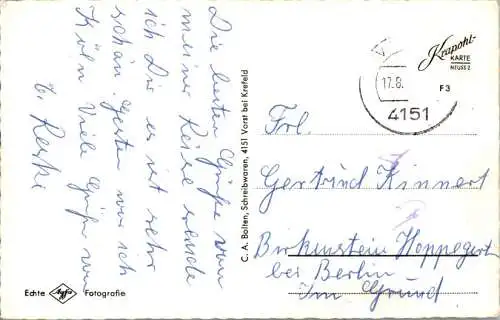 Die besten Grüße von
meiner Reise sende
ich Dir es ist sehr
schön. Gestern war ich
Köln Viele Grüße von
Echte Agfa Fotografie
C. A. Bolten, Schreibwaren, 4151 Vorst bei Krefeld
Krapohl-
KARTE
NEUSS 2
F3
17.8.
4151
Frl.
Gertrud Kinnert
Birkenstein Hoppegart
bei Berlin
Im Grund